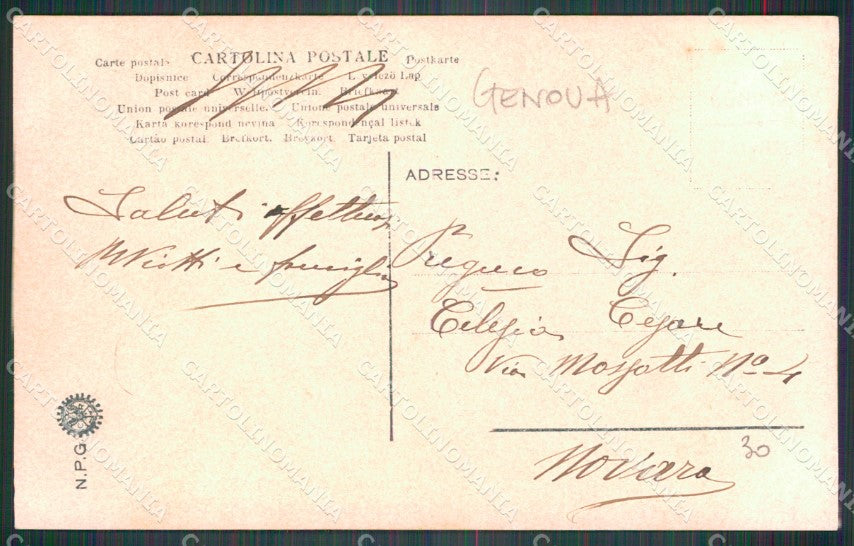 Carte postale CARTOLINA POSTALE Postkarte
Dopisnice Correspondenzkarte L velező Lap
Post card Weltpostverein. Briefkaart
Union postale universelle. Unione postale universale
Karta korespond ncvina Korespondençal listek
Cartão postal. Brefkort. Brevkort. Tarjeta postal
GENOVA
ADRESSE:
Saluti affettuosi
Viotti e famiglia
Sig.
Cesare
Via No 4
Novara
30
N.P.G.
CARTOLINOMANIA